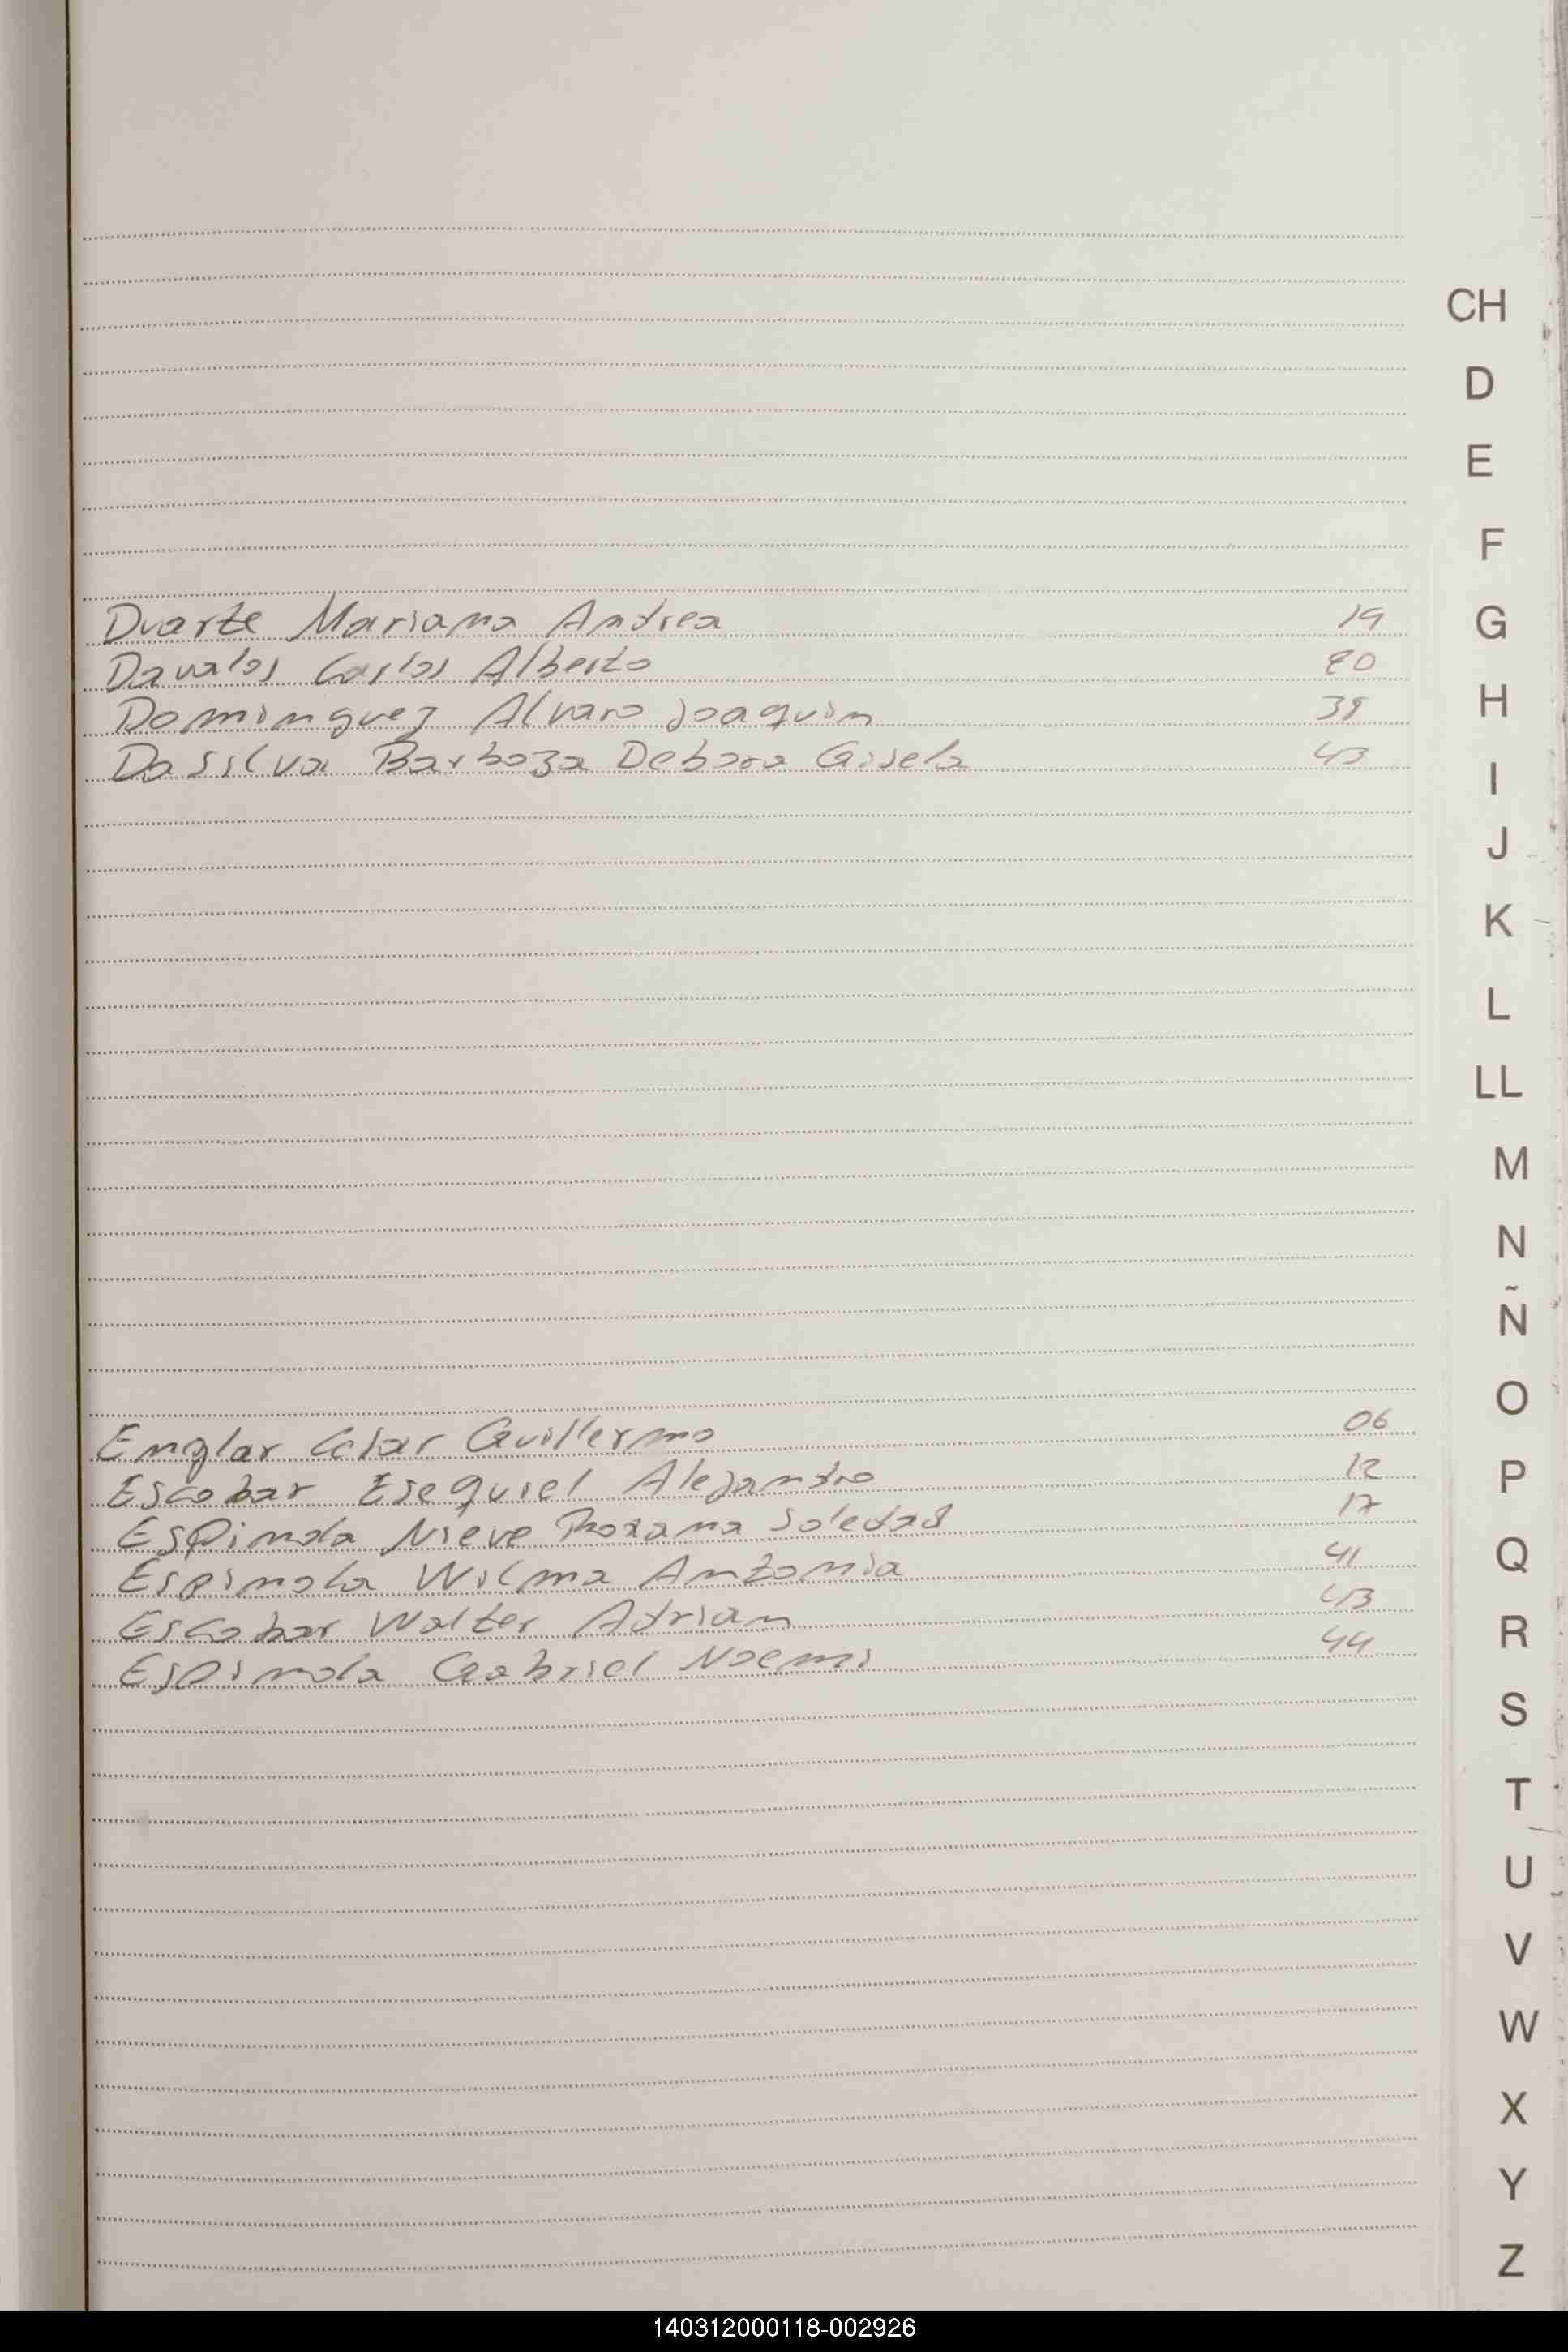 CH
D
E
F
Duarte Mariana Andrea 19
G
Davalos Carlos Alberto 20
Dominguez Alvaro Joaquin 39
H
Da Silva Barboza Debora Gisela 43
I
J
K
L
LL
M
N
Ñ
O
Englar Guillermo 06
Escobar Esequiel Alejandro 12
P
Espinola Nieve Roxana Soledad 17
Espinola Wilma Antonia 41
Q
Escobar Walter Adrian 43
R
Espinola Gabriel Noemi 44
S
T
U
V
W
X
Y
Z
140312000118-002926